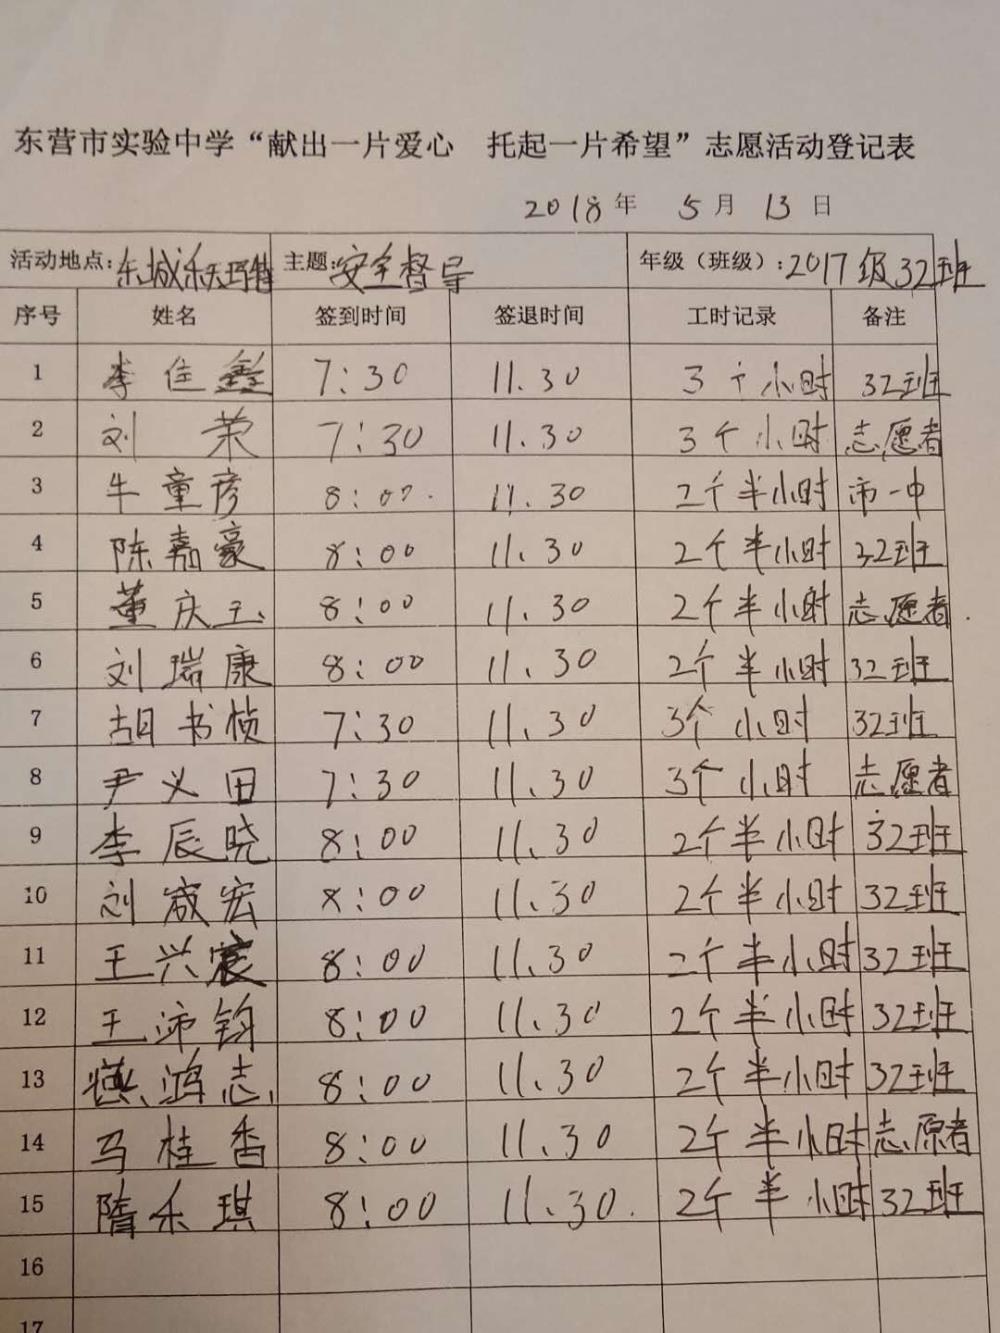 东营市实验中学“献出一片爱心 托起一片希望”志愿活动登记表
2018年 5月 13日
活动地点:东城沃玛 主题:安全督导 年级(班级):2017级32班
序号 姓名 签到时间 签退时间 工时记录 备注
1 李佳鑫 7:30 11.30 3个小时 32班
2 刘荣 7:30 11.30 3个小时 志愿者
3 牛童彦 8:00. 11.30 2个半小时 市一中
4 陈嘉豪 8:00 11.30 2个半小时 32班
5 董庆玉 8:00 11.30 2个半小时 志愿者.
6 刘瑞康 8:00 11.30 2个半小时 32班
7 胡书桢 7:30 11.30 3个小时 32班
8 尹义田 7:30 11.30 3个小时 志愿者
9 李辰晓 8:00 11.30 2个半小时 32班
10 刘宬宏 8:00 11.30 2个半小时 32班
11 王兴宸 8:00 11.30 2个半小时 32班
12 王沛钧 8:00 11.30 2个半小时 32班
13 鸿志 8:00 11.30 2个半小时 32班
14 马桂香 8:00 11.30 2个半小时 志原者
15 隋禾琪 8:00 11.30. 2个半小时 32班
16
17